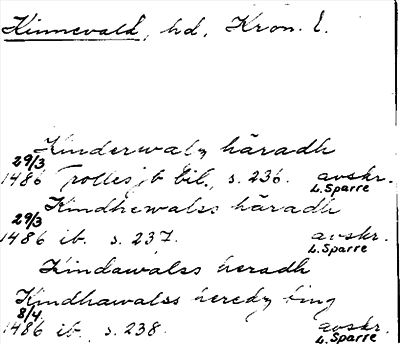 Kinnevald, hd, Kron. l.
Kinderwalz häradh
29/3
1486 Trolles jb bil., s. 236. avskr.
L. Sparre
Kindhewalss häradh
29/3
1486 ib. s. 237. avskr.
L. Sparre
Kindawalss heradh
Kindhawalss heredz ting
8/4
1486 ib., s. 238. avskr.
L. Sparre